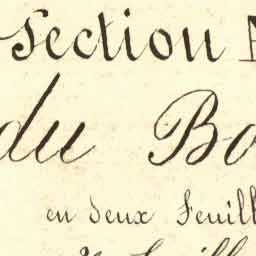 Section
du Bo
en deux Feuill